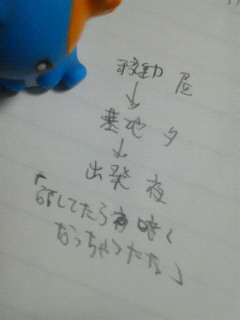 移動 昼
↓
基地 夕
↓
出発 夜
「話してたら夜暗く
なっちゃったな」